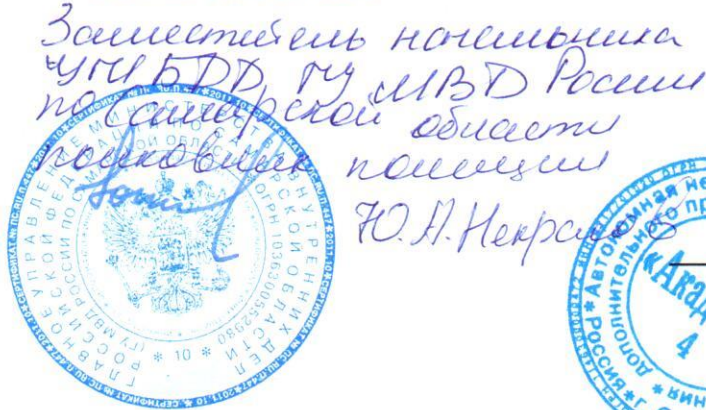 Заместитель начальника
УГИБДД ГУ МВД России
по Самарской области
полковник полиции
Ю.А.Некрасов
ГЛАВНОЕ УПРАВЛЕНИЕ МИНИСТЕРСТВА ВНУТРЕННИХ ДЕЛ
РОССИЙСКОЙ ФЕДЕРАЦИИ ПО САМАРСКОЙ ОБЛАСТИ
(ГУ МВД РОССИИ ПО САМАРСКОЙ ОБЛАСТИ) ОГРН 1036300552980
* 10 *
Автономная не
дополнительного пр
«Акад
4
* РОССИЯ * г. С